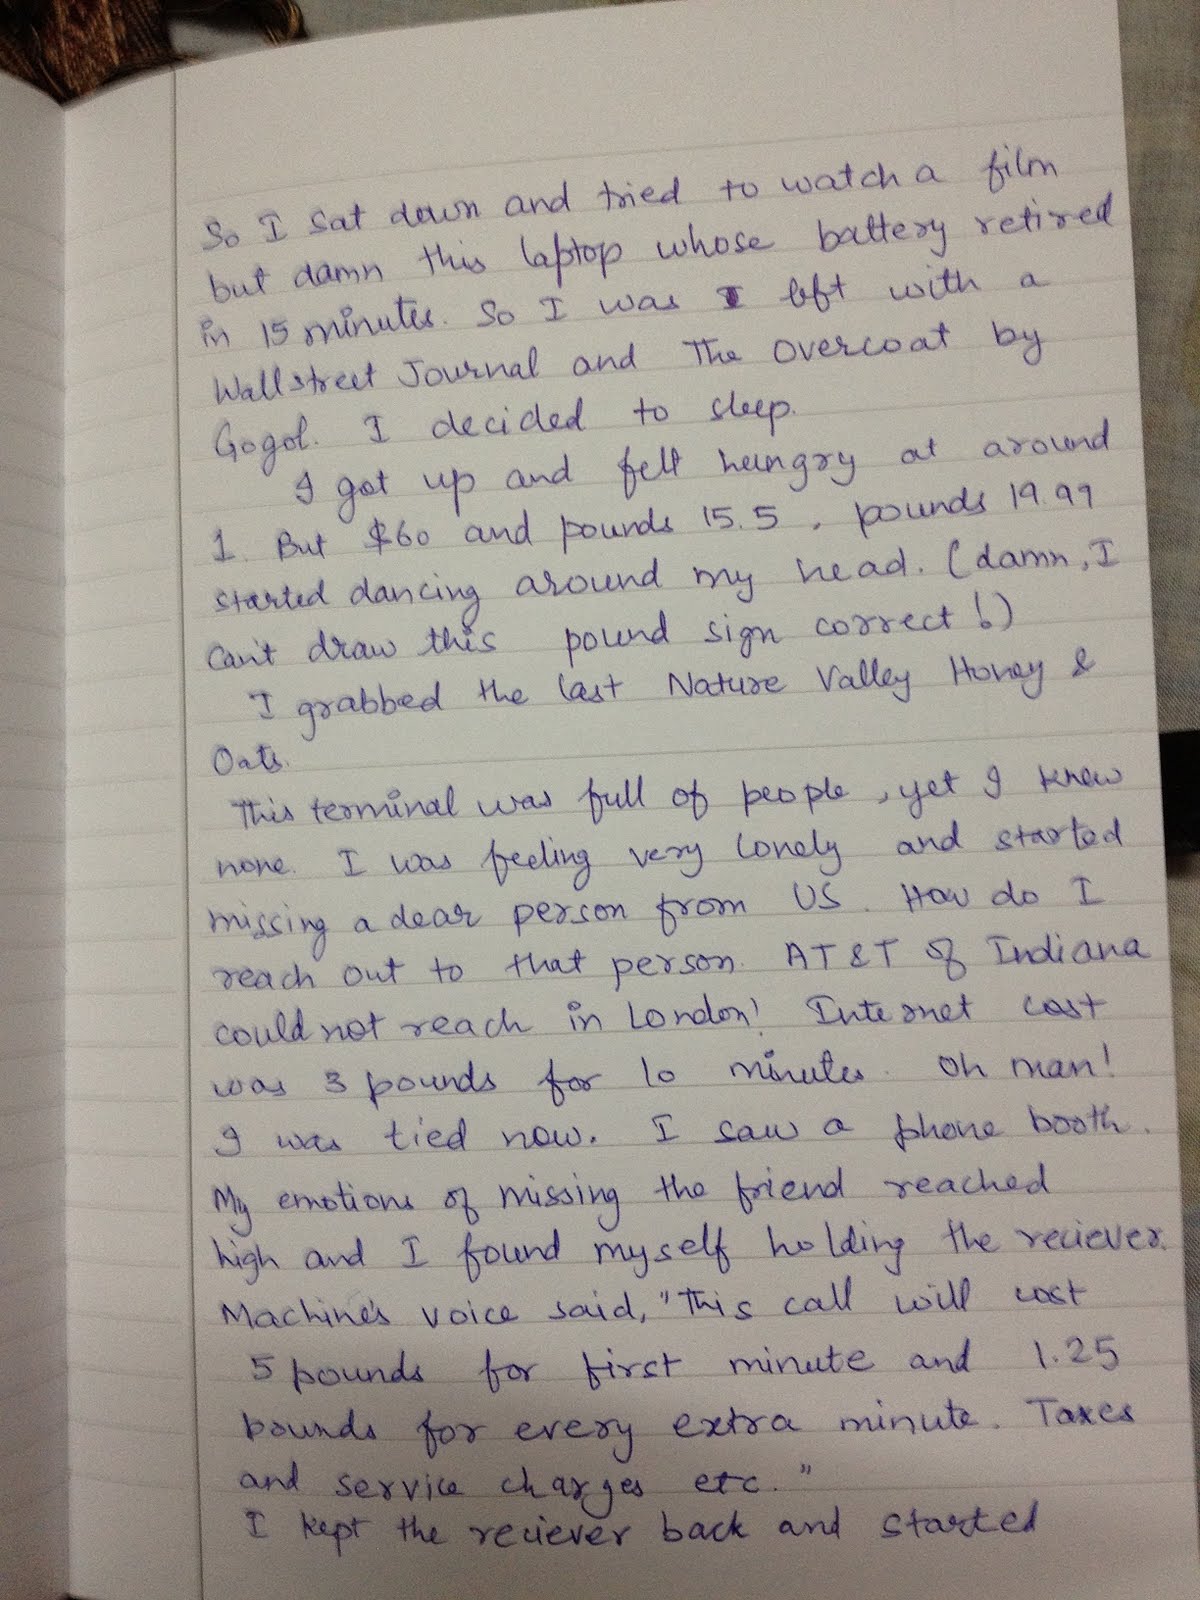 So I sat down and tried to watch a film
but damn this laptop whose battery retired
in 15 minutes. So I was I left with a
Wallstreet Journal and The Overcoat by
Gogol. I decided to sleep.
I got up and felt hungry at around
1. But $60 and pounds 15.5, pounds 19.99
started dancing around my head. (damn, I
can't draw this pound sign correct!)
I grabbed the last Nature Valley Honey &
Oats.
This terminal was full of people, yet I knew
none. I was feeling very lonely and started
missing a dear person from US. How do I
reach out to that person. AT&T of Indiana
could not reach in London! Internet cost
was 3 pounds for 10 minutes. Oh man!
I was tied now. I saw a phone booth.
My emotions of missing the friend reached
high and I found myself holding the reciever.
Machine's voice said, "This call will cost
5 pounds for first minute and 1.25
pounds for every extra minute. Taxes
and service charges etc."
I kept the reciever back and started